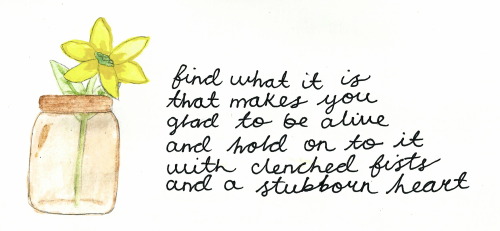 find what it is
that makes you
glad to be alive
and hold on to it
with clenched fists
and a stubborn heart